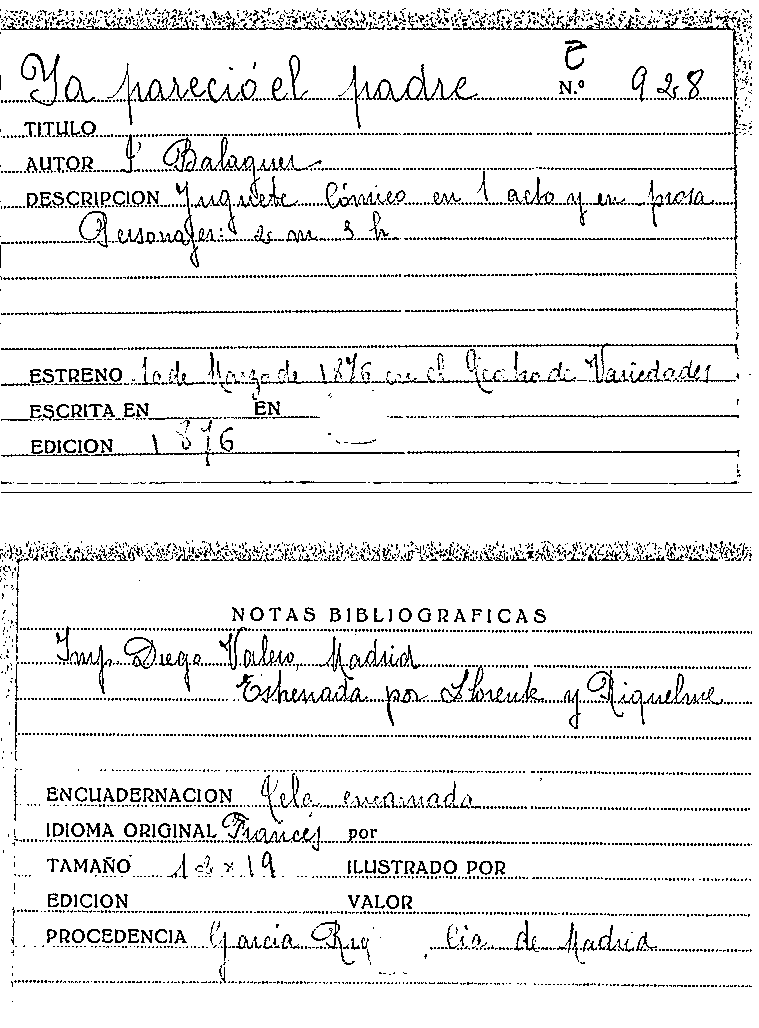 Ya pareció el padre Nº 928
TITULO
AUTOR J Balaguer
DESCRIPCION Juguete Cómico en 1 acto y en prosa
Personajes: 2 m 3 h
ESTRENO 10 de Marzo de 1876 en el Teatro de Variedades
ESCRITA EN EN
EDICION 1876
NOTAS BIBLIOGRAFICAS
Imp. Diego Valero, Madrid
Estrenada por Llorente y Riquelme
ENCUADERNACION Tela encarnada
IDIOMA ORIGINAL Francés por
TAMAÑO 12 x 19 ILUSTRADO POR
EDICION VALOR
PROCEDENCIA García Rey Cia. de Madrid